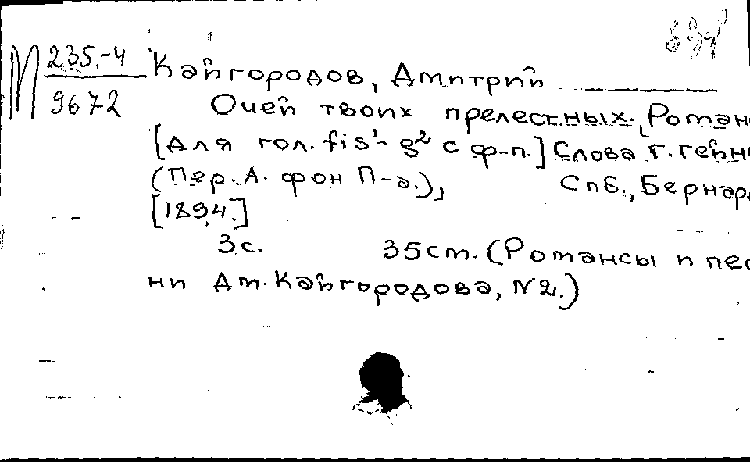 М 235-4
9672
Кайгородов, Дмитрий
Очей твоих прелестных. [Роман
[Для гол. fis¹- g² с ф-п.] Слова Г. Гейн
(Пер. А. фон П-а.), Спб., Бернар
[1894.]
3с. 35 cm. (Романсы и пес
ни Дм. Кайгородова, N 2.)